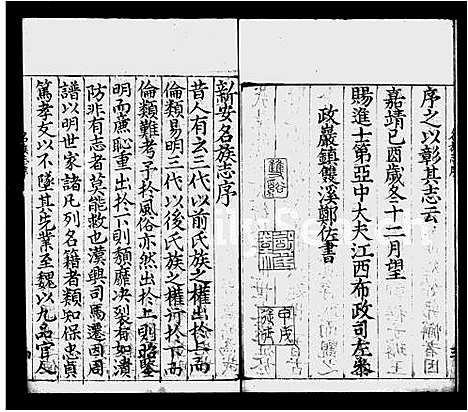 序之以彰其志云
嘉靖己酉歲冬十二月望
賜進士第亞中大夫江西布政司左叅
政巖鎮雙溪鄭佐書
雙溪
甲戌
新安名族志序
昔人有云三代以前氏族之權出扵上而
倫類易明三代以後氏族之權行扵下而
倫類難考予扵風俗亦然出扵上則昭鑒
明而廉恥重出扵下則頽靡决裂有如潰
防非有志者莫能救也漢興司馬遷因周
譜以明世家諸凡列名籍者類知保忠貞
篤孝友以不墜其步業至魏以九品官人